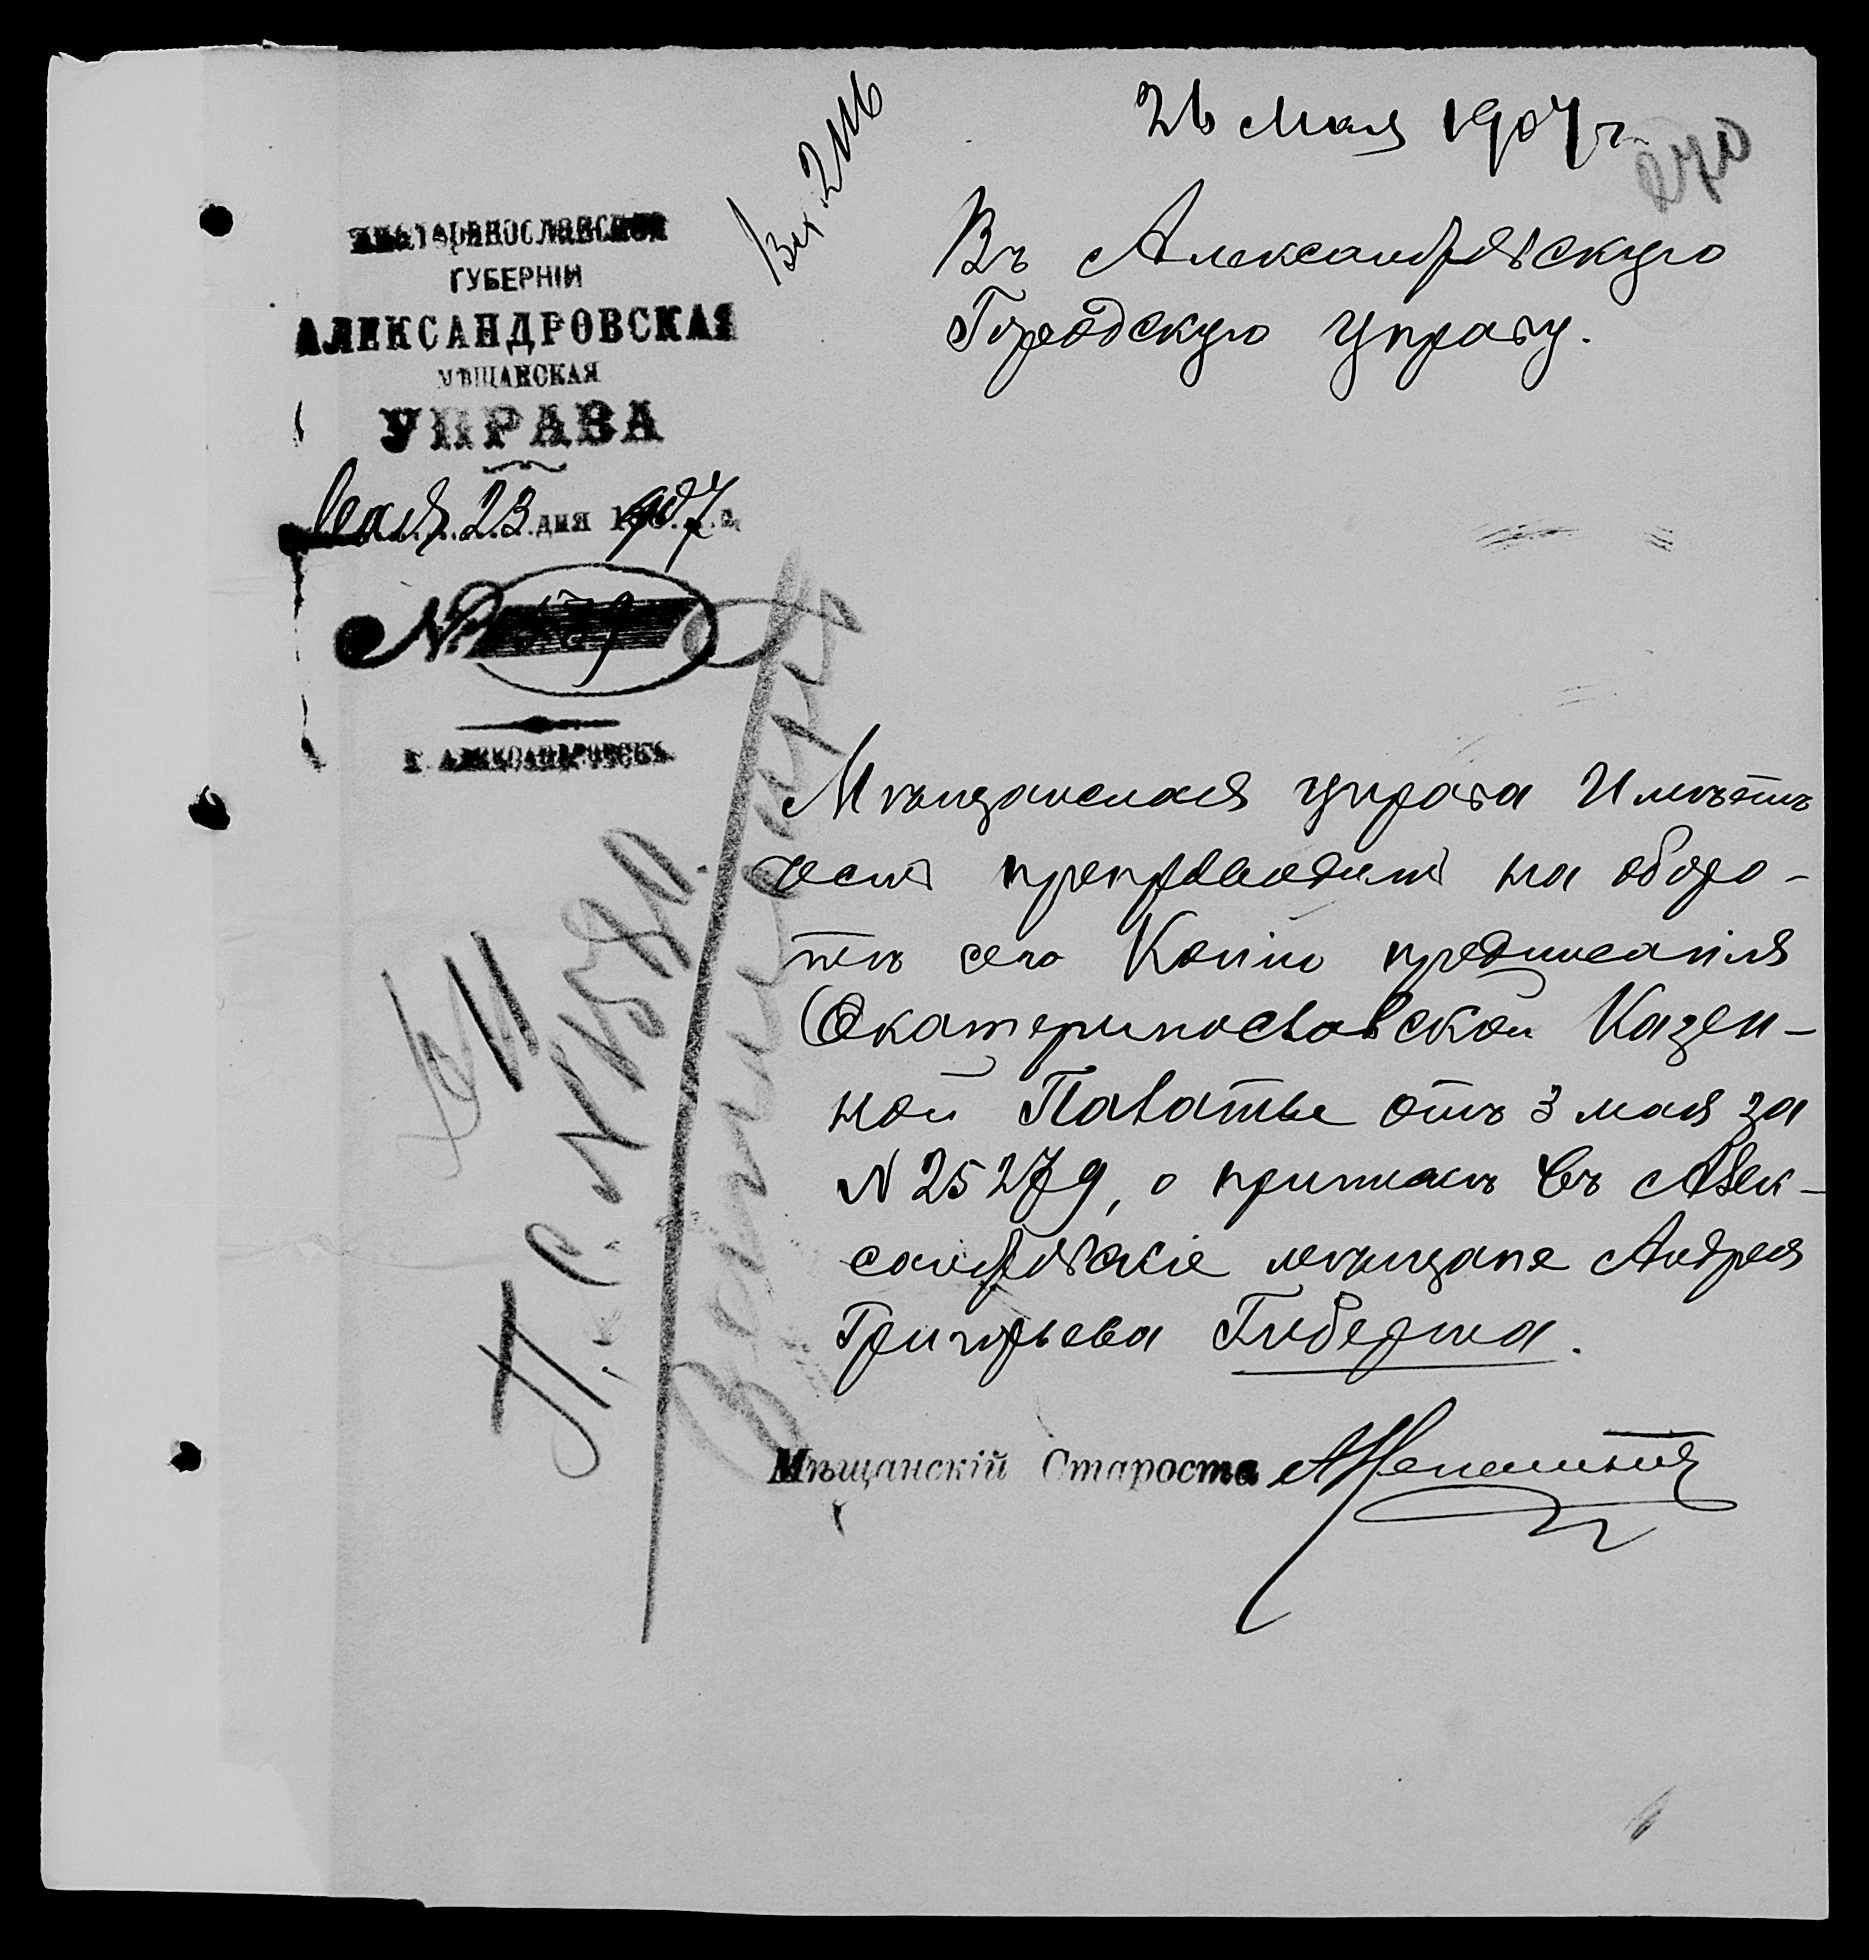 26 Мая 1907 г.
270
Вх 2116
ЕКАТЕРИНОСЛАВСКОЙ
ГУБЕРНІИ
АЛЕКСАНДРОВСКАЯ
МѢЩАНСКАЯ
УПРАВА
Мая 23 дня 1907 г.
№
Г. АЛЕКСАНДРОВСКЪ.
Въ Александровскую
Городскую Управу.
Мѣщанская управа Имѣетъ
честь препроводить на оборо-
тѣ сего Копію предписанія
Екатеринославской Казен-
ной Палаты отъ 3 мая за
N 25279, о припискѣ въ Алек-
сандровскіе мѣщане Андрея
Григорьева Гиберта.
Мѣщанскій Староста